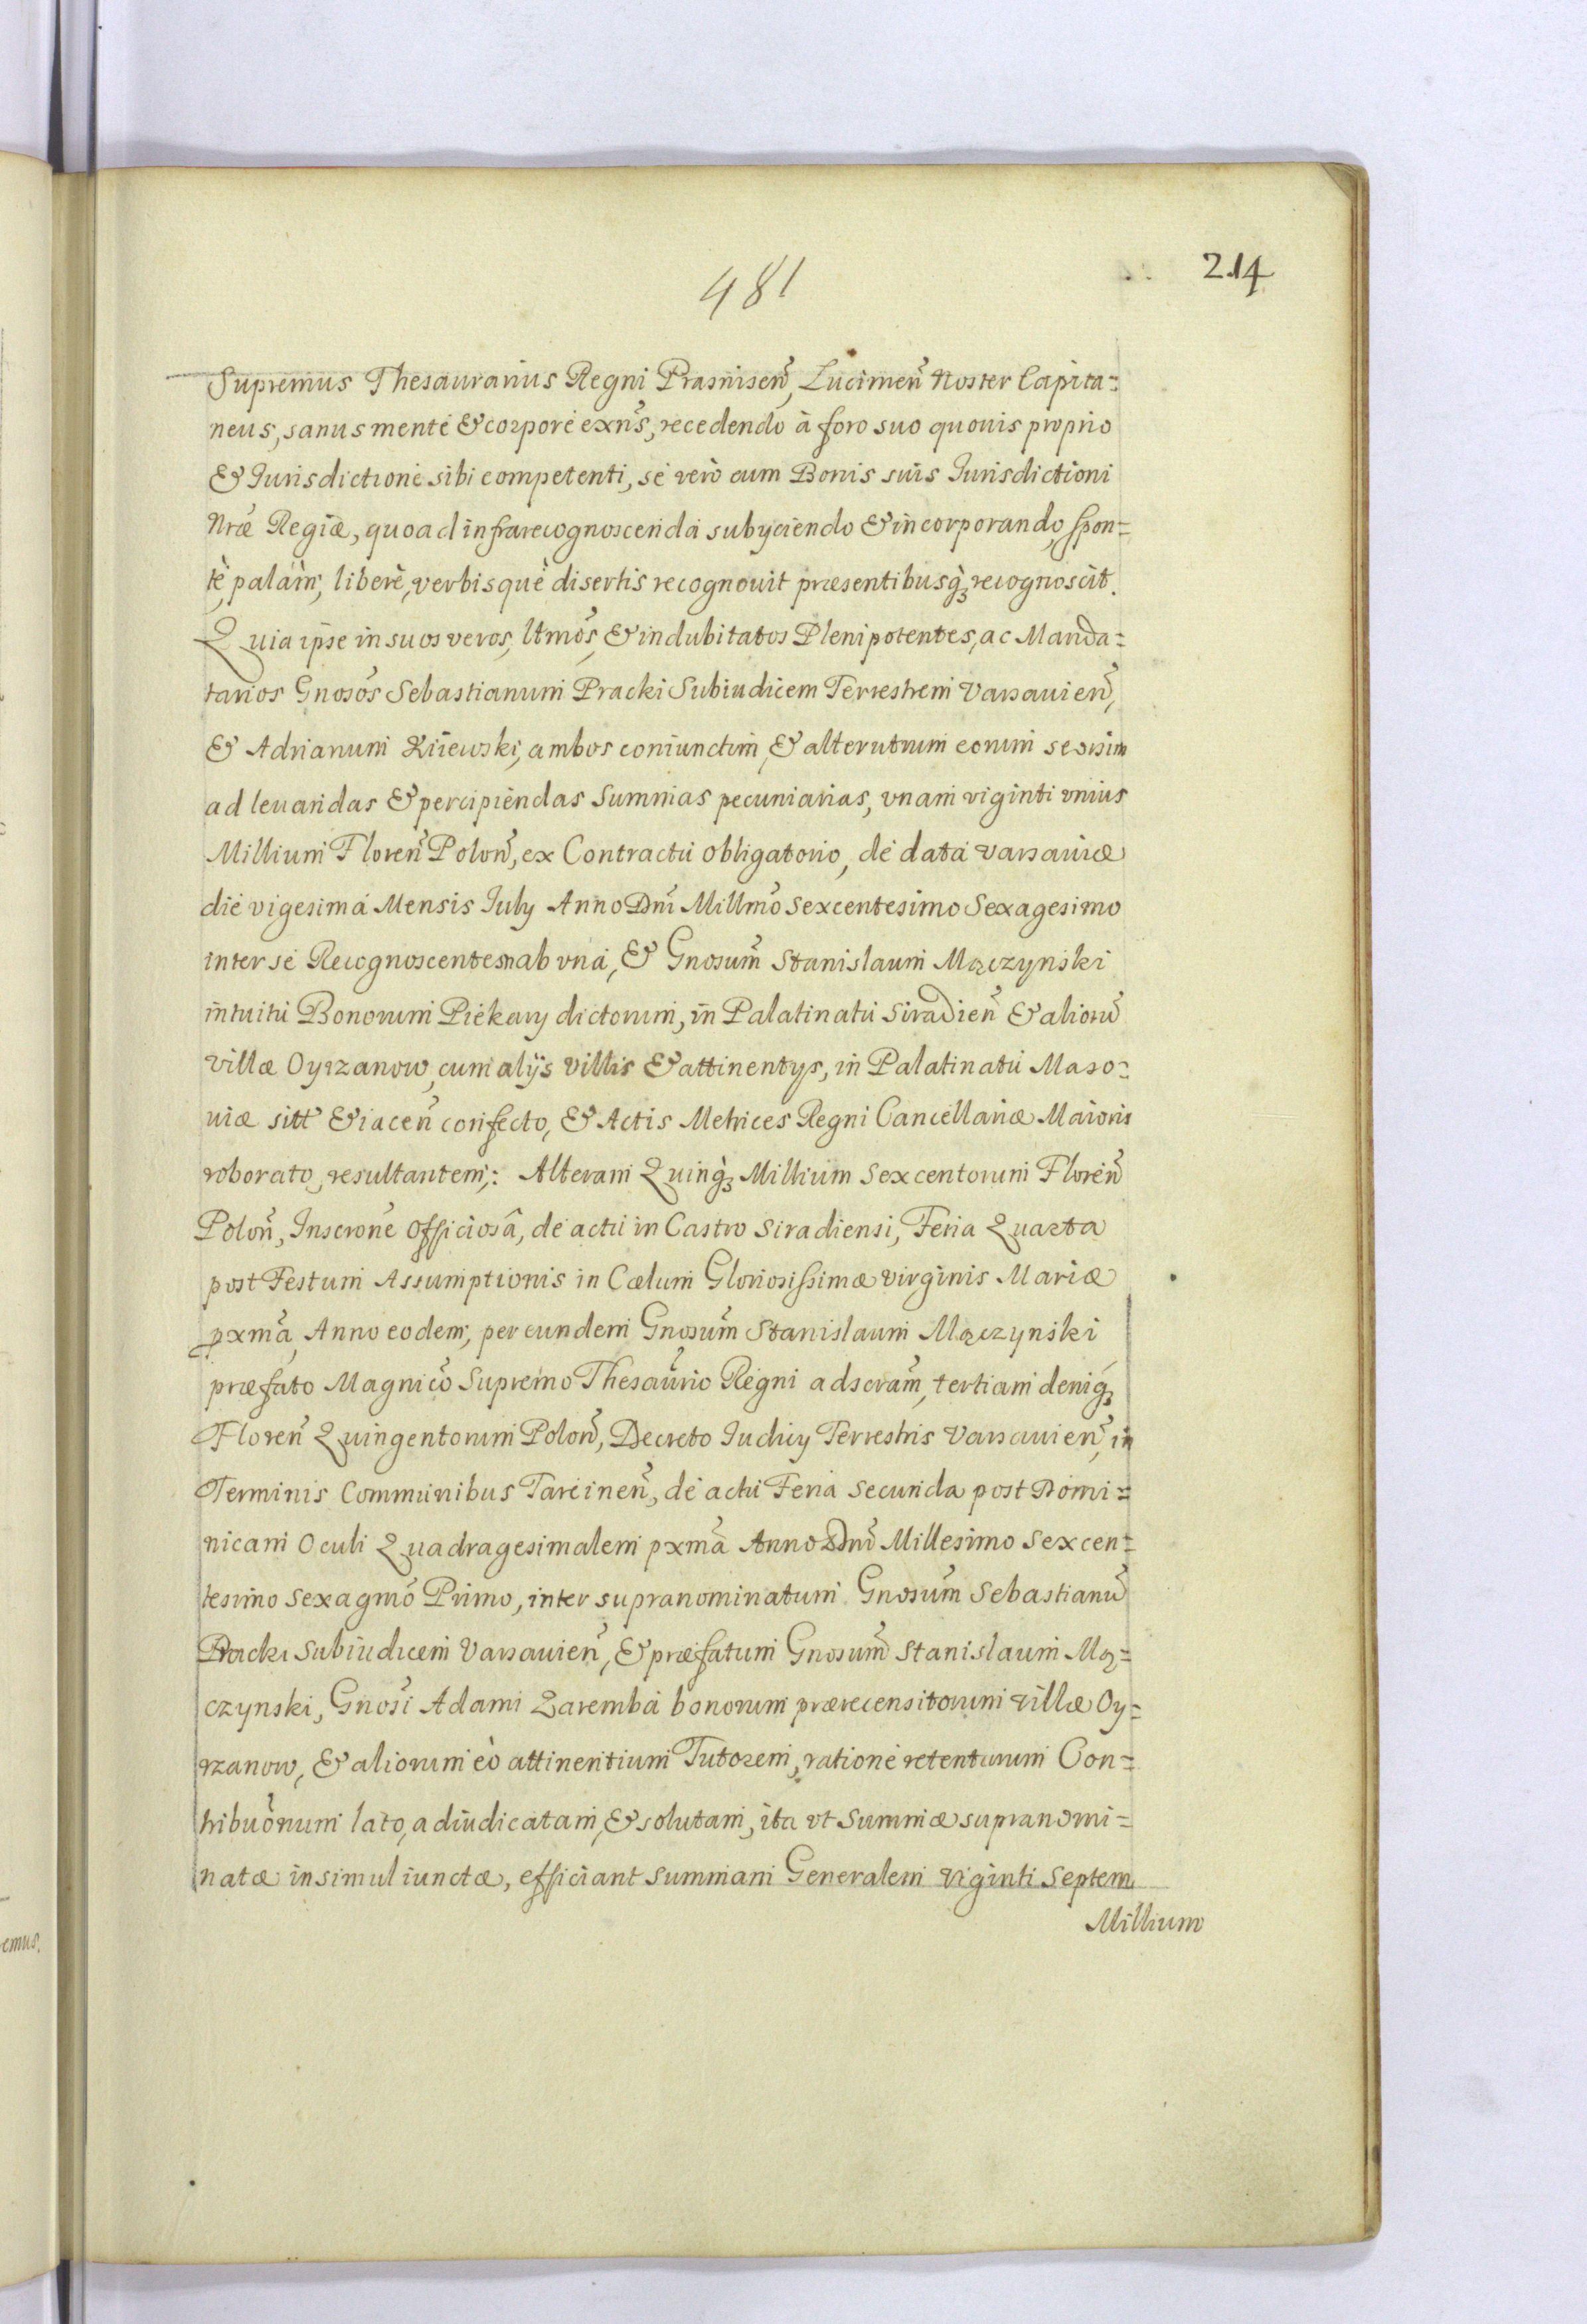 481
214
Supremus Thesaurarius Regni Prasnisen̄, Lucimen̄ Noster Capita=
neus, sanus mente & corpore exn̄s, recedendo à foro suo quouis proprio
& Jurisdictione sibi competenti, se verò cum Bonis suis Jurisdictioni
Nr̄æ Regiæ, quoad infrarecognoscenda subyciendo & incorporando, spon=
tè, palàm, liberè, verbisquè disertis recognouit præsentibusq̀ꝫ recognoscit.
Quia ipse in suos veros, ltmōs, & indubitatos Plenipotentes, ac Manda=
tarios Gnosōs Sebastianum Pracki Subiudicem Terrestrem Varsauien̄,
& Adrianum Kiiewski, ambos coniunctim, & alterutrum eorum seorsim
ad leuandas & percipiendas Summas pecuniarias, vnam viginti vnius
Millium Floren̄ Polon̄, ex Contractu obligatorio, de data Varsauiæ
die vigesima Mensis July Anno Dn̄i Millmō Sexcentesimo Sexagesimo
inter se Recognoscentem ab vna, & Gnosum̄ Stanislaum Mączynski
intuitu Bonorum Piekary dictorum, in Palatinatu Siradien̄ & aliorū
villæ Oyrzanow, cum alijs villis & attinentys, in Palatinatu Maso=
uiæ sitt̄ & iacen̄ confecto, & Actis Metrices Regni Cancellariæ Maioris
roborato, resultantem,: Alteram Quinq̀ꝫ Millium Sexcentorum Floren̄
Polon̄, Inscrōne officiosâ, de actu in Castro Siradiensi, Feria Quarta
post Festum Assumptionis in Cælum Gloriosissimæ virginis Mariæ
pxmā, Anno eodem, per eundem Gnosum̄ Stanislaum Mączynski
præfato Magnicō Supremo Thesaūrio Regni adscram̄, tertiam deniq́ꝫ
Floren̄ Quingentorum Polon̄, Decreto Judicy Terrestris Varsauien̄, in
Terminis Communibus Tarcinen̄, de actu Feria Secunda post Domi=
nicam Oculi Quadragesimalem pxmā Anno Dn̄i Millesimo Sexcen=
tesimo Sexagmō Primo, inter supranominatum Gnosum̄ Sebastianū
Pracki Subiudicem Varsauien̄, & præfatum Gnosum̄ Stanislaum Mą=
czynski, Gnosī Adami Zaremba bonorum prærecensitorum villæ Oy=
rzanow, & aliorum eò attinentium Tutorem, ratione retentorum Con=
tribuōnum lato, adiudicatam, & solutam, ita vt Summæ supranomi=
natæ insimul iunctæ, efficiant summam Generalem viginti Septem
Millium
emus,